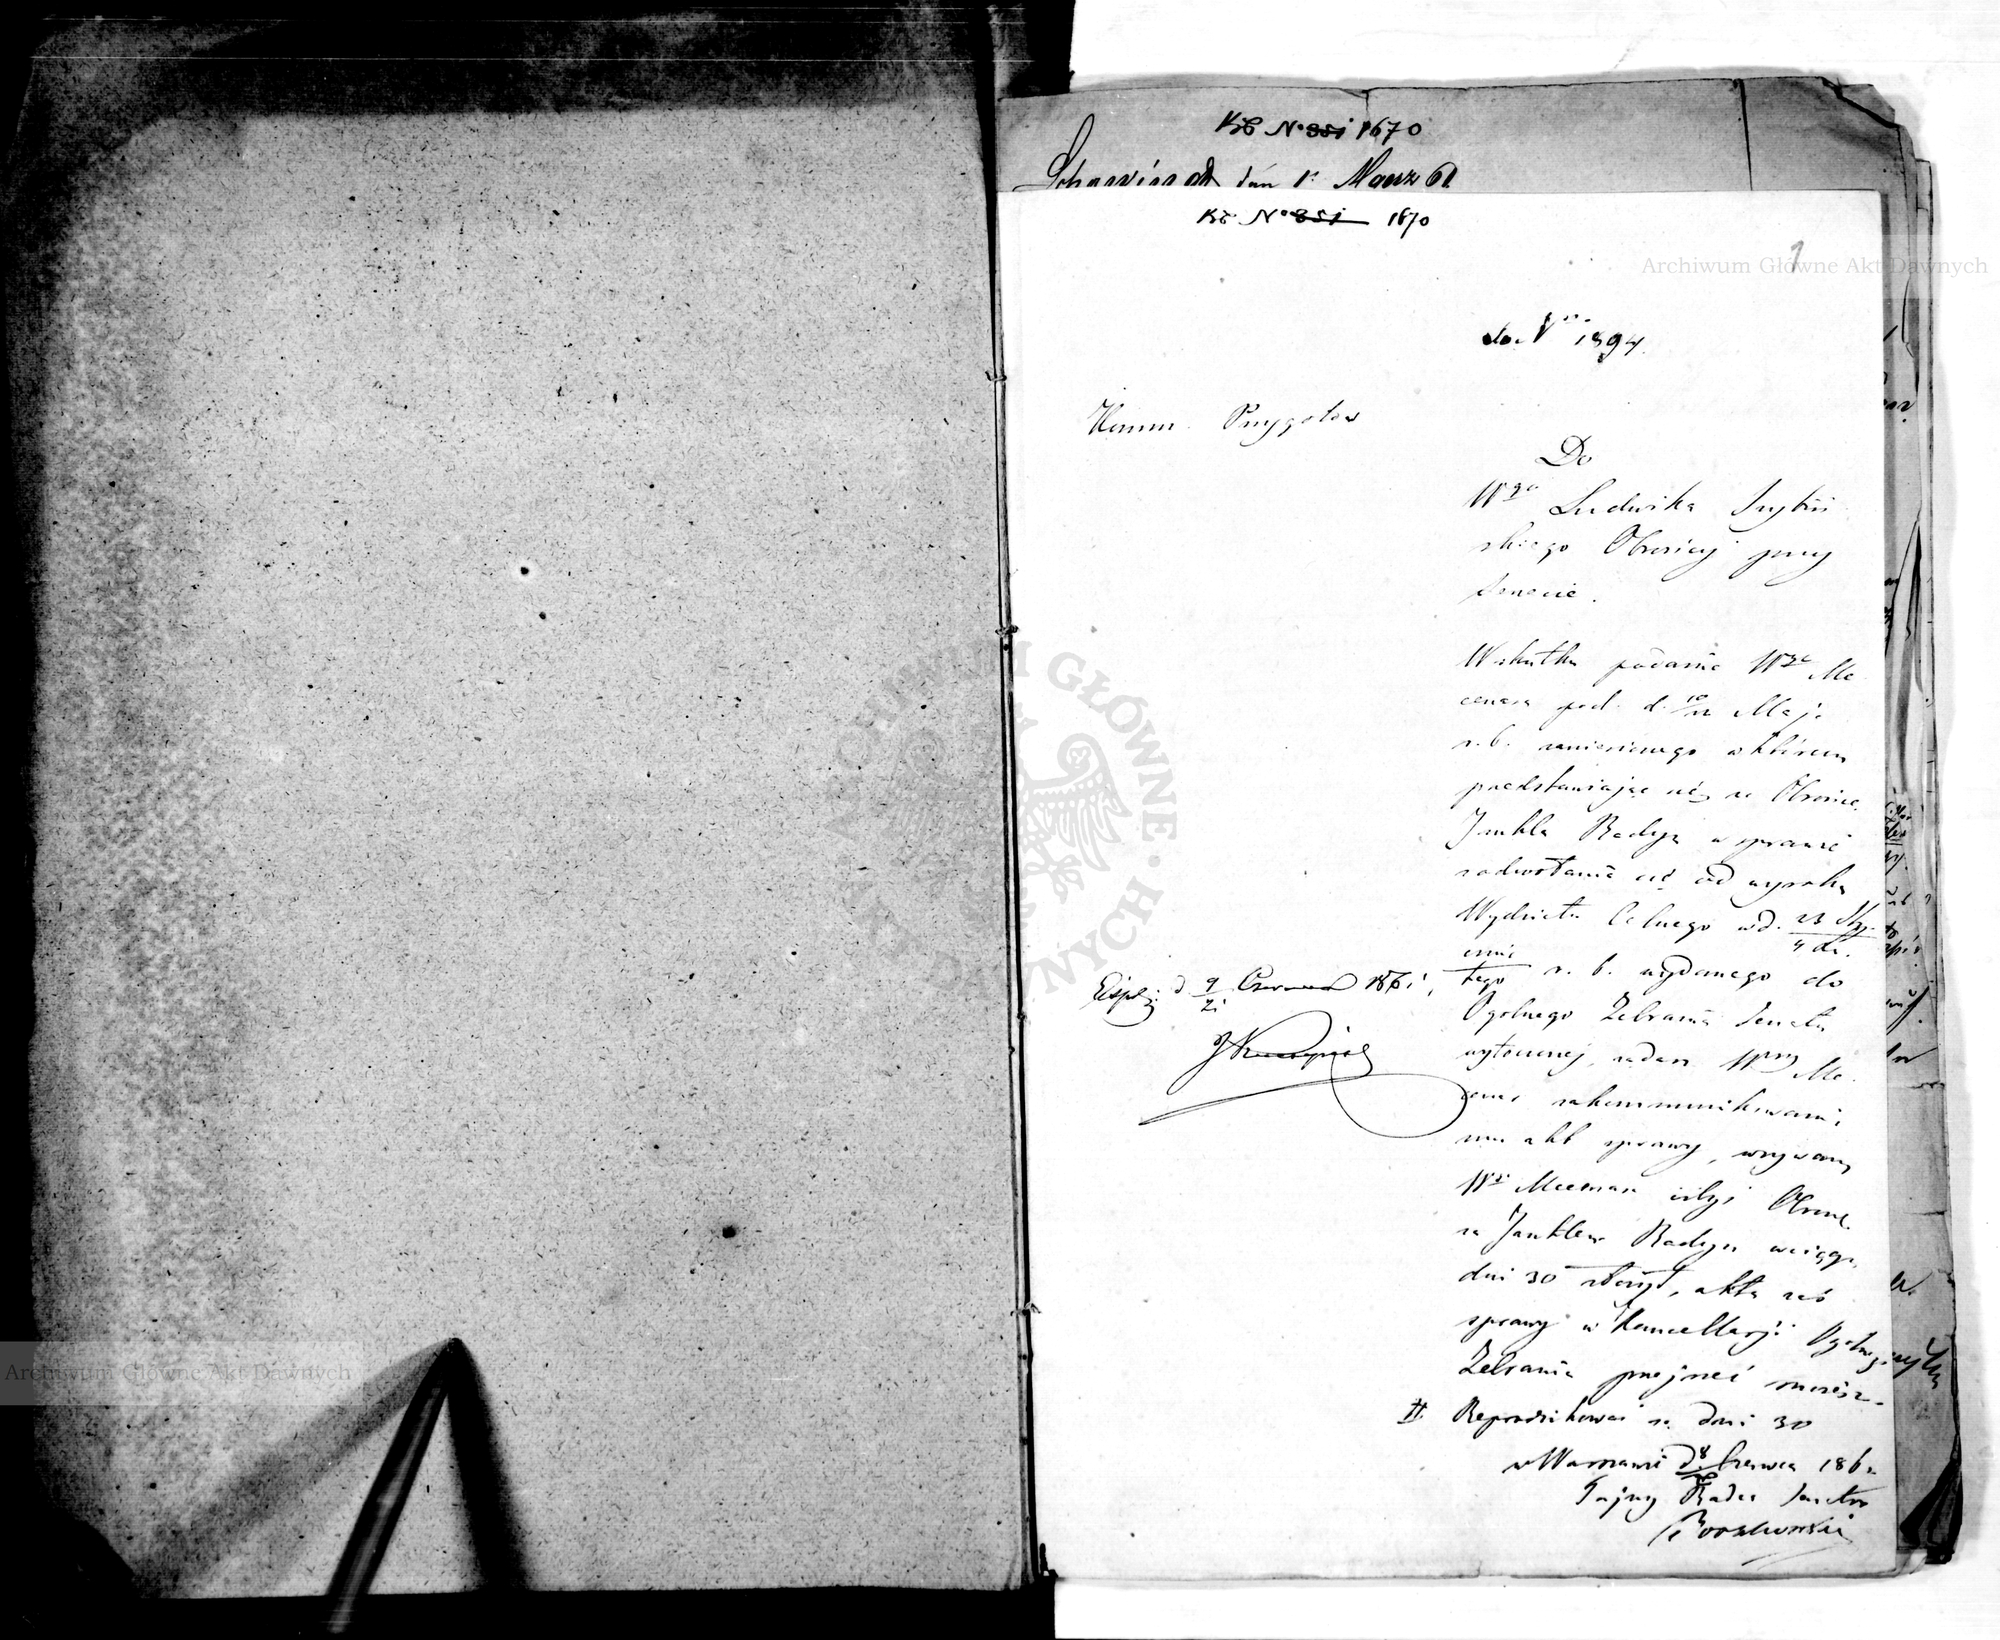 Kb No 851 1670
dån 1 März 61
Kb No 851 1670
1
Archiwum Główne Akt Dawnych
do No 1894.
Komm. Przygotow
Do
Wgo Ludwika
skiego Obrońcy przy
Senacie.
W skutku podania Wgo Me
cenasa pod d. 10/22 Maja
r. b. zaniesionego w którem
przedstawiając się za Obrońcę
Jankla Radyn w sprawie
zodwołania się od wyroku
Wydziału Celnego w d. 23 Sty-
cznia 4 Lu-
tego r. b. wydanego do
Ogólnego Zebrania Senatu
wytoczonej, żądasz Wny Me
cenas zakommunikowania
mu akt sprawy, wzywam
Wo Mecenasa iżbyś Obronę
za Janklem Radyn w ciągu
dni 30 złożył, akta zaś
sprawy w Kancellarji Ogólnego
Zebrania przejrzeć możesz.
II Reprodukować za dni 30
w Warszawie d. 8 Czerwca 186
Tajny Radca Senator
Exped: d. 9/21 Czerwca 1861,
ARCHIWUM GŁÓWNE AKT DAWNYCH
Archiwum Główne Akt Dawnych